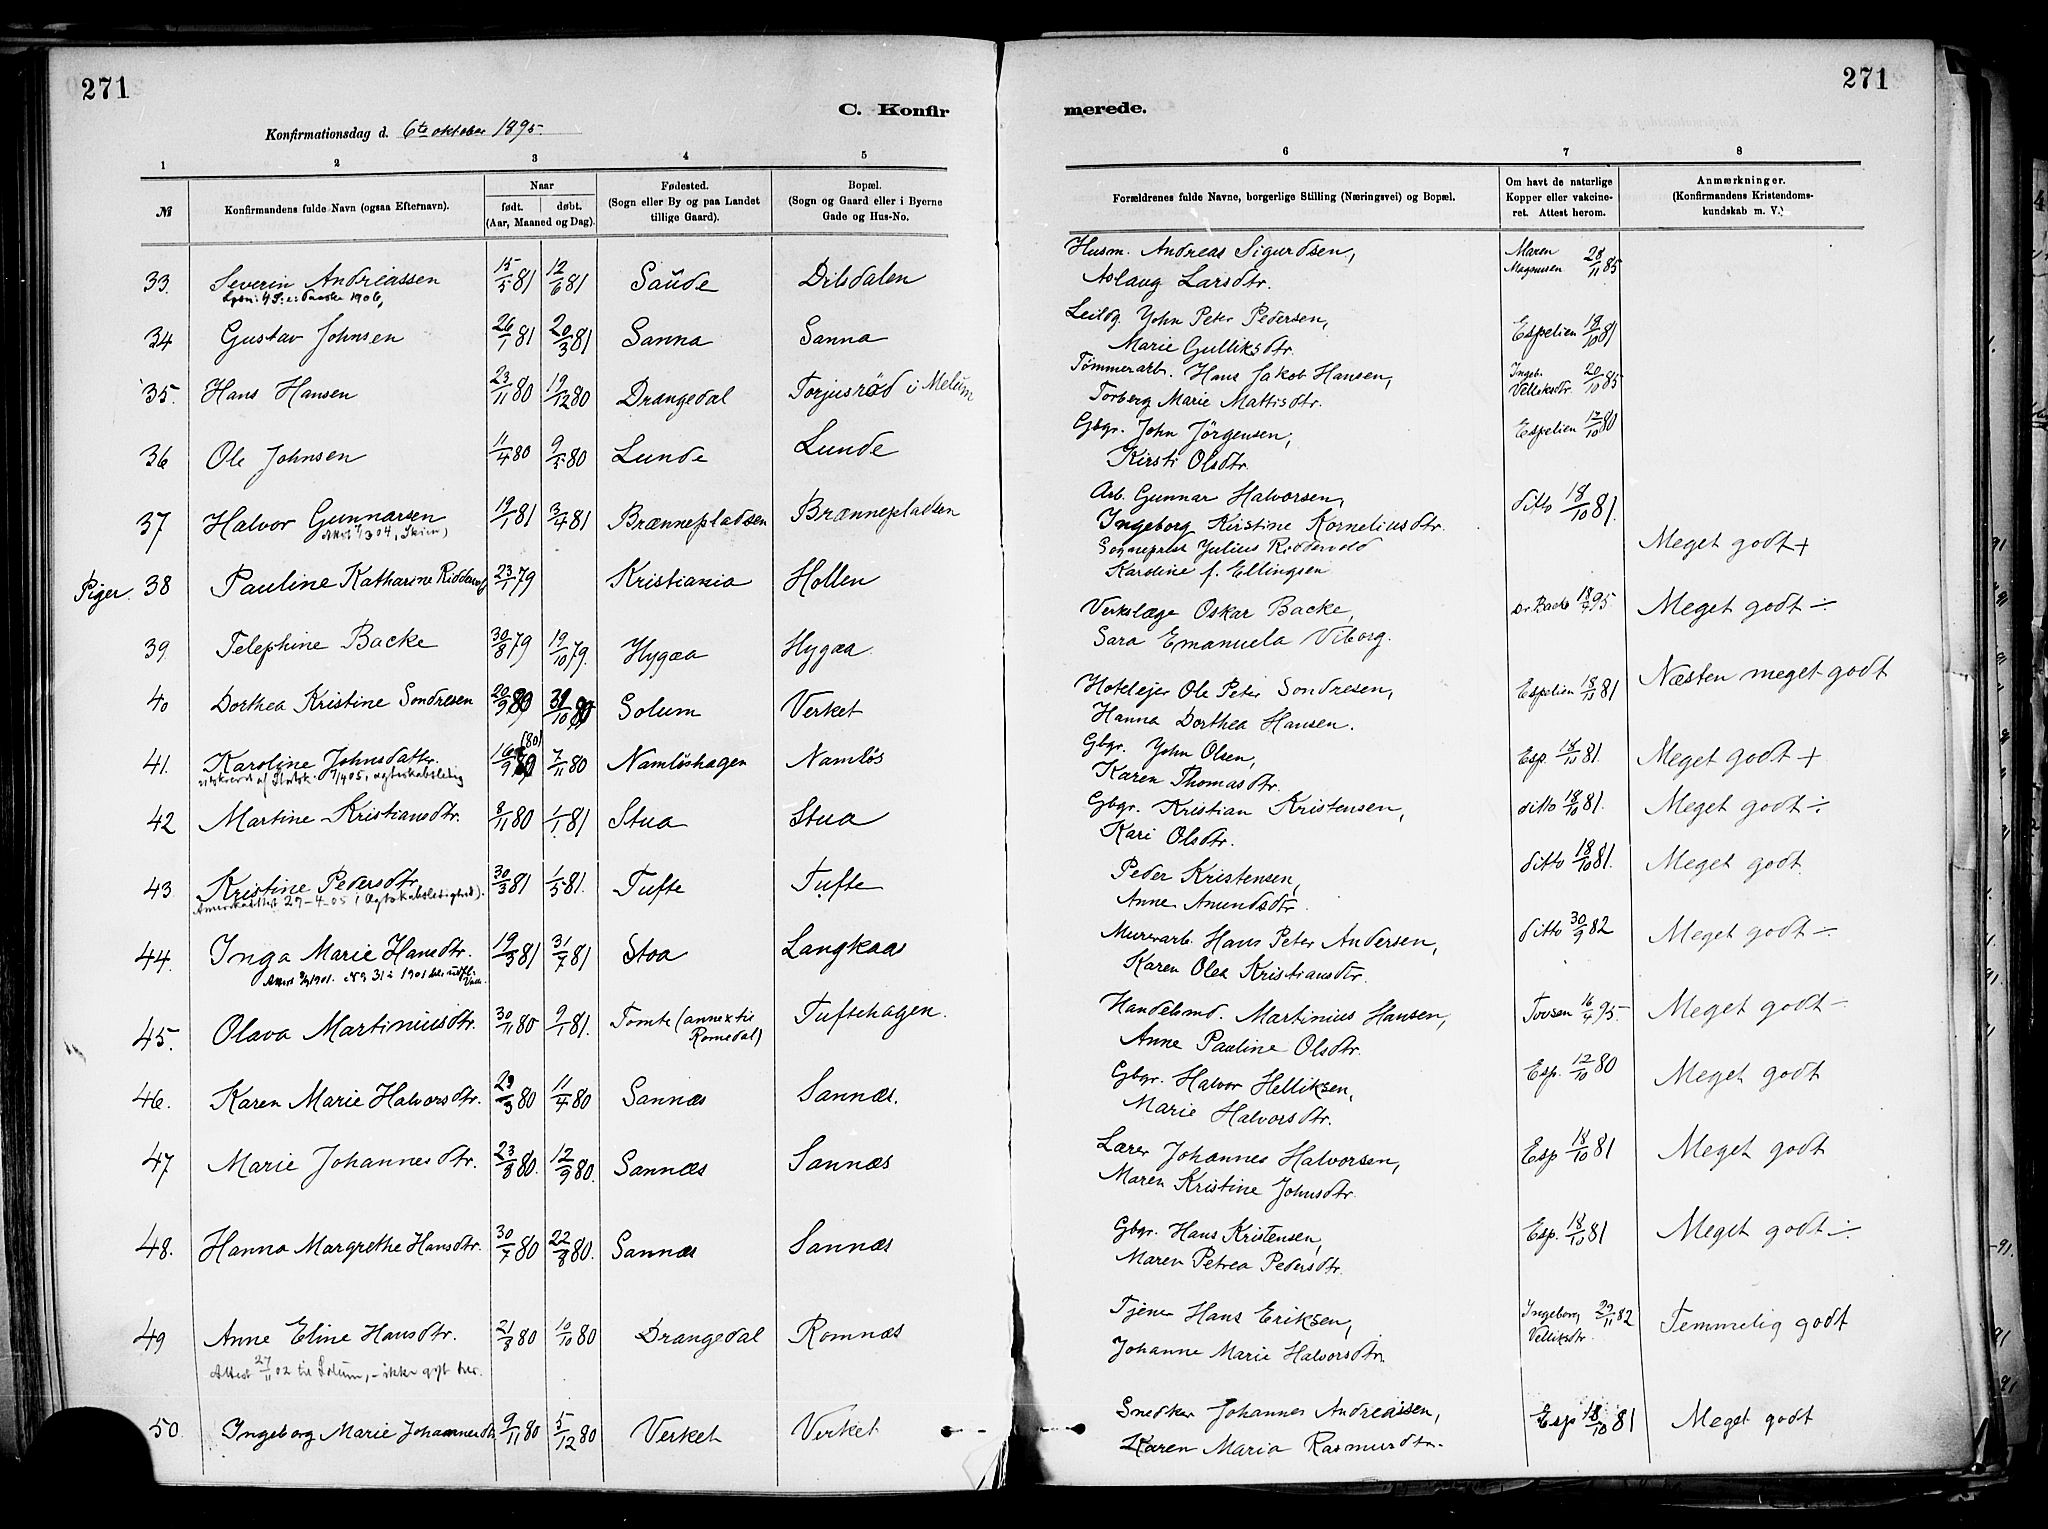 271
271
C. Konfir
merede.
Konfirmationsdag d. 6te oktober 1895.
1 2 3 4 5 6 7 8
№ Konfirmandens fulde Navn (ogsaa Efternavn). Naar født. døbt. (Aar, Maaned og Dag). Fødested. (Sogn eller By og paa Landet tillige Gaard). Bopæl. (Sogn og Gaard eller i Byerne Gade og Hus-No. Forældrenes fulde Navne, borgerlige Stilling (Næringsvei) og Bopæl. Om havt de naturlige Kopper eller vakcineret. Attest herom. Anmærkninger. (Konfirmandens Kristendomskundskab m. V.)
33. Severin Andreassen 15/5 81 12/6 81 Saude Dilsdalen Husm. Andreas Sigurdsen, Maren Magnusen 28/11 85
Aslaug Larsdtr.
34 Gustav Johnsen 26/1 81 20/3 81 Sanna Sanna Leildg. John Peter Pedersen, Espelien 18/10 81
Marie Gulliksdtr.
35. Hans Hansen 23/11 80 19/12 80 Drangedal Torjusrød i Melum Tømmerarb. Hans Jakob Hansen, Ingeb. Velliksdtr. 20/10 85
Torberg Marie Mattisdtr.
36 Ole Johnsen 11/4 80 9/5 80 Lunde Lunde Gbgr. John Jörgensen, Espelien 12/10 80
Kirsti Olsdtr.
37 Halvor Gunnarsen 19/1 81 3/4 81 Brænnepladsen Brænnepladsen Arb. Gunnar Halvorsen, ditto 18/10 81.
Ingeborg Kirstine Korneliusdtr.
Piger. 38 Pauline Katharine Riddervold 23/1 79 Kristiania Hollen Sogneprest Julius Riddervold Meget godt +
Karoline f. Ellingsen
39. Telephine Backe 30/8 79 19/10 79. Hygæa Hygæa. Verkslæge Oskar Backe, Dr. Backe 18/9 95. Meget godt ÷
Sara Emanuela Viborg.
40 Dorthea Kristine Sondresen 20/9 80 31/10 80 Solum Verket Hotelejer Ole Peter Sondresen, Espelien 18/10 81 Næsten meget godt
Hanna Dorthea Hansen.
41. Karoline Johnsdatter. 16/9 (80) 7/11 80 Namløshagen Namløs Gbgr. John Olsen, Esp. 18/10 81. Meget godt +
Karen Thomasdtr.
42 Martine Kristiansdtr. 8/11 80 1/1 81 Stua Stua Gbgr. Kristian Kristensen, ditto 18/10 81. Meget godt ÷
Kari Olsdtr.
43. Kristine Pedersdtr. 30/3 81 1/5 81. Tufte Tufte Peder Kristensen, ditto 18/10 81. Meget godt.
Amerika 29-4-05
Anne Amundsdtr.
44. Inga Marie Hansdtr. 19/3 81 31/7 81 Stoa Langkaas Murerarb. Hans Peter Andersen, ditto 30/9 82 Meget godt ÷
Karen Olea Kristiansdtr.
45. Olava Martiniusdtr. 30/11 80 9/1 81. Tomte (annex til Romedal) Tuftehagen. Handelsmd. Martinius Hansen, Tovsen 16/4 95. Meget godt ÷
Anne Pauline Olsdtr.
46. Karen Marie Halvorsdtr. 29/3 80 11/4 80 Sannæs Sannæs. Gbgr. Halvor Helliksen, Esp. 12/10 80 Meget godt
Marie Halvorsdtr.
47 Marie Johannesdtr. 23/8 80. 12/9 80. Sannæs Sannæs Lærer Johannes Halvorsen, Esp 18/10 81 Meget godt
Maren Kristine Johnsdtr.
48. Hanna Margrethe Hansdtr. 30/7 80 22/8 80. Sannæs Sannæs Gbgr. Hans Kristensen, Esp. 18/10 81 Meget godt ÷
Maren Petrea Pedersdtr.
49 Anne Eline Hansdtr. 21/8 80 10/10 80 Drangedal Romnæs Tjener Hans Eriksen, Ingeborg Velliksdtr. 29/11 82 Temmelig godt
Attest 27/11 02 til Solum, - ikke gift her.
Johanne Marie Halvorsdtr.
50. Ingeborg Marie Johannesdtr. 9/11 80 5/12 80 Verket Verket Snedker Johannes Andreassen, Esp 18/10 81 Meget godt
Karen Maria Rasmusdtr.